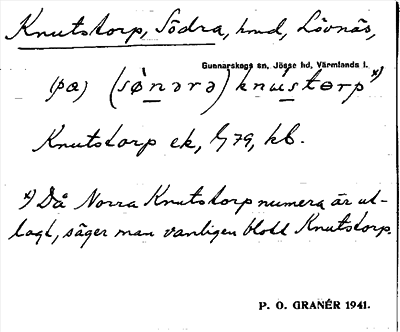 Knutstorp, Södra, hmd, Lövnäs,
Gunnarskogs sn, Jösse hd, Värmlands l.
(pα) (sø̀nərə) knustɵrp x)
Knutstorp ek, G 79, kb.
x) Då Norra Knutstorp numera är ut-
lagt, säger man vanligen blott Knutstorp.
P. O. GRANÉR 1941.